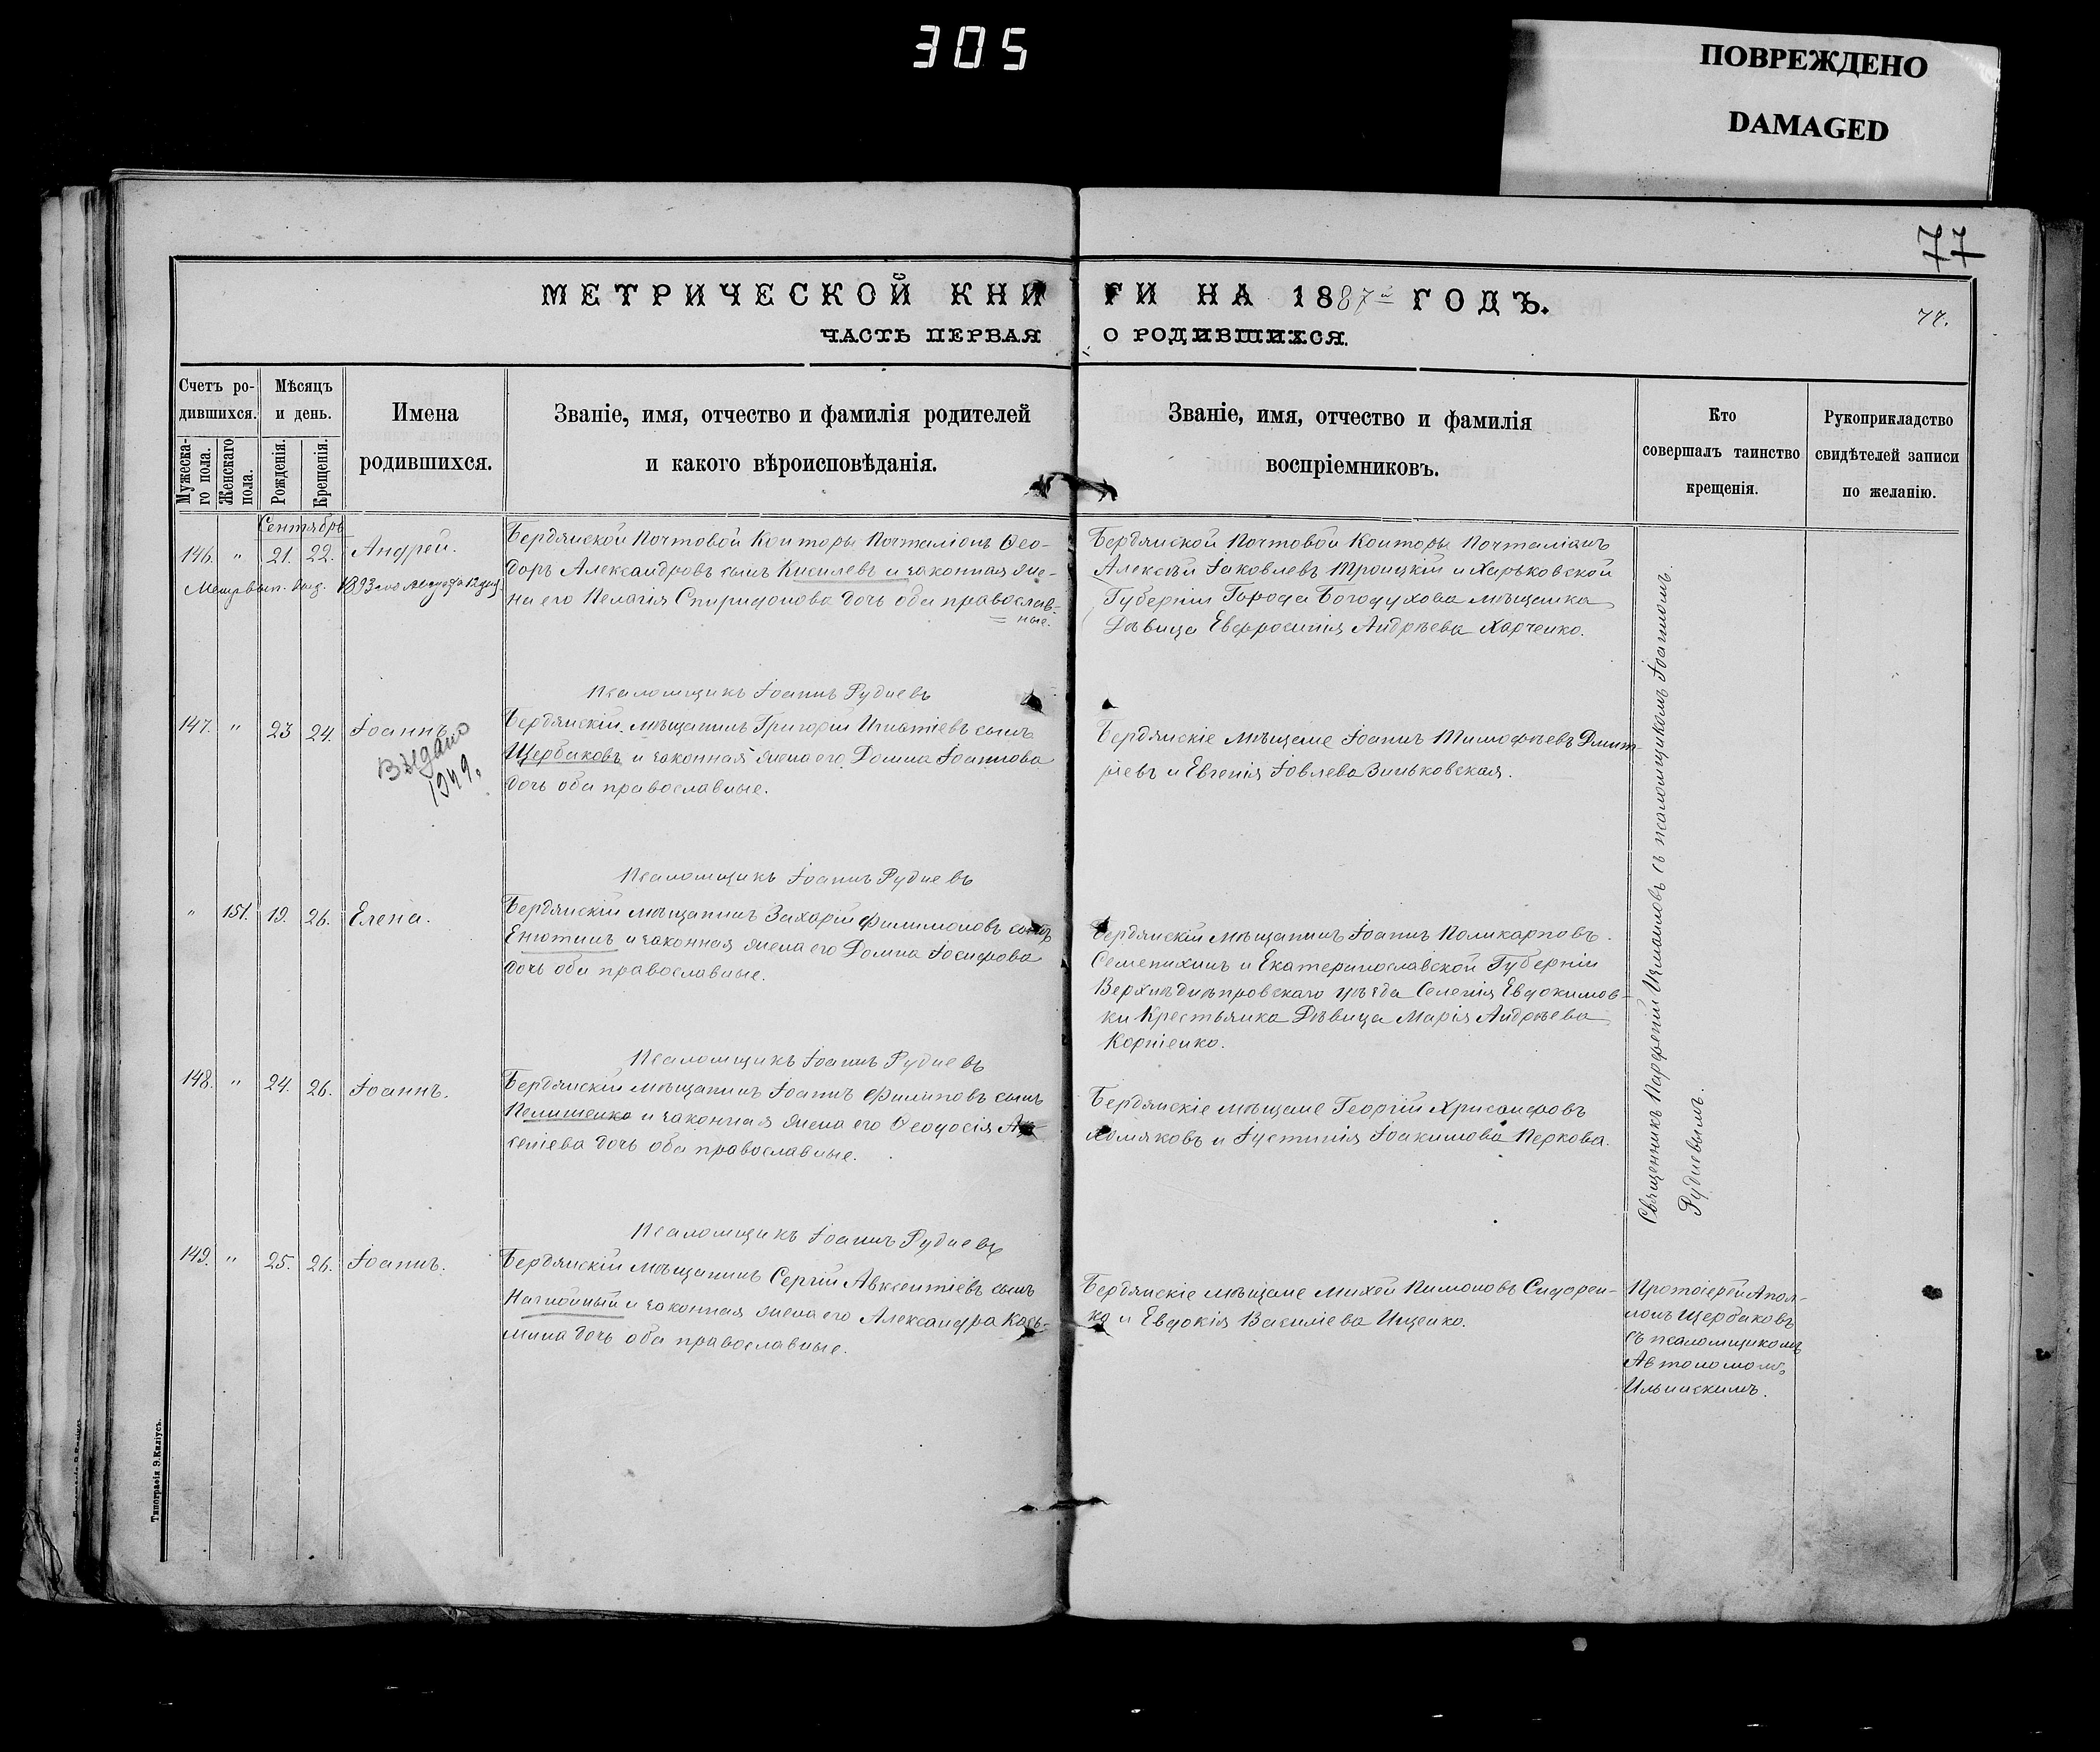 305
ПОВРЕЖДЕНО
DAMAGED
77
МЕТРИЧЕСКОЙ КНИГИ НА 1887й ГОДЪ.
77.
ЧАСТЬ ПЕРВАЯ О РОДИВШИХСЯ.
Счетъ ро-
дившихся.
Мужеска-
го пола.
Женскаго
пола.
Мѣсяцъ
и день.
Рожденія.
Крещенія.
Имена
родившихся.
Званіе, имя, отчество и фамилія родителей
и какого вѣроисповѣданія.
Званіе, имя, отчество и фамилія
воспріемниковъ.
Кто
совершалъ таинство
крещенія.
Рукоприкладство
свидѣтелей записи
по желанію.
Сентябрь
146. " 21. 22. Андрей.
Метр. вып. выд. 1893
Бердянской Почтовой Конторы Почталіонъ Ѳео-
доръ Александровъ сынъ Киселевъ и законная же-
на его Пелагія Спиридонова дочь оба православ-
ные.
Бердянской Почтовой Конторы Почталіонъ
Алексѣй Іаковлевъ Троицкій и Харьковской
Губерніи Города Богодухова мѣщанка
Дѣвица Евфросинія Андрѣева Харченко.
Псаломщикъ Іоаннъ Рудневъ
147. " 23 24. Іоаннъ.
Выдано
1949.
Бердянскій мѣщанинъ Григорій Игнатіевъ сынъ
Щербаковъ и законная жена его Домна Іоаннова
дочь оба православные.
Бердянскіе мѣщане Іоаннъ Тимофѣевъ Дмит-
ріевъ и Евгенія Іовлева Зиньковская.
Псаломщикъ Іоаннъ Рудневъ
" 151. 19. 26. Елена.
Бердянскій мѣщанинъ Захарій Филимоновъ сынъ
Енютинъ и законная жена его Домна Іосифова
дочь оба православные.
Бердянскій мѣщанинъ Іоаннъ Поликарповъ
Семенихинъ и Екатеринославской Губерніи
Верхнѣднѣпровскаго уѣзда Селенія Евдокимов-
ки Крестьянка Дѣвица Марія Андрѣева
Корніенко.
Псаломщикъ Іоаннъ Рудневъ
148. " 24. 26. Іоаннъ.
Бердянскій мѣщанинъ Іоаннъ Филиповъ сынъ
Пелишенко и законная жена его Ѳеодосія Ар-
сеніева дочь оба православные.
Бердянскіе мѣщане Георгій Хрисанфовъ
Хомяковъ и Іустинія Іоакимова Перкова.
Священникъ Парфеній Измаиловъ съ псаломщикомъ Іоанномъ
Рудневымъ.
Псаломщикъ Іоаннъ Рудневъ
149. " 25. 26. Іоаннъ.
Бердянскій мѣщанинъ Сергій Авксентіевъ сынъ
Нагнойный и законная жена его Александра Козь-
мина дочь оба православные.
Бердянскіе мѣщане Михей Пимоновъ Сидорен-
ко и Евдокія Василіева Ищенко.
Протоіерей Апол-
лонъ Щербаковъ
съ псаломщикомъ
Автономомъ
Ильинскимъ.
Типографія Э. Киліусъ.